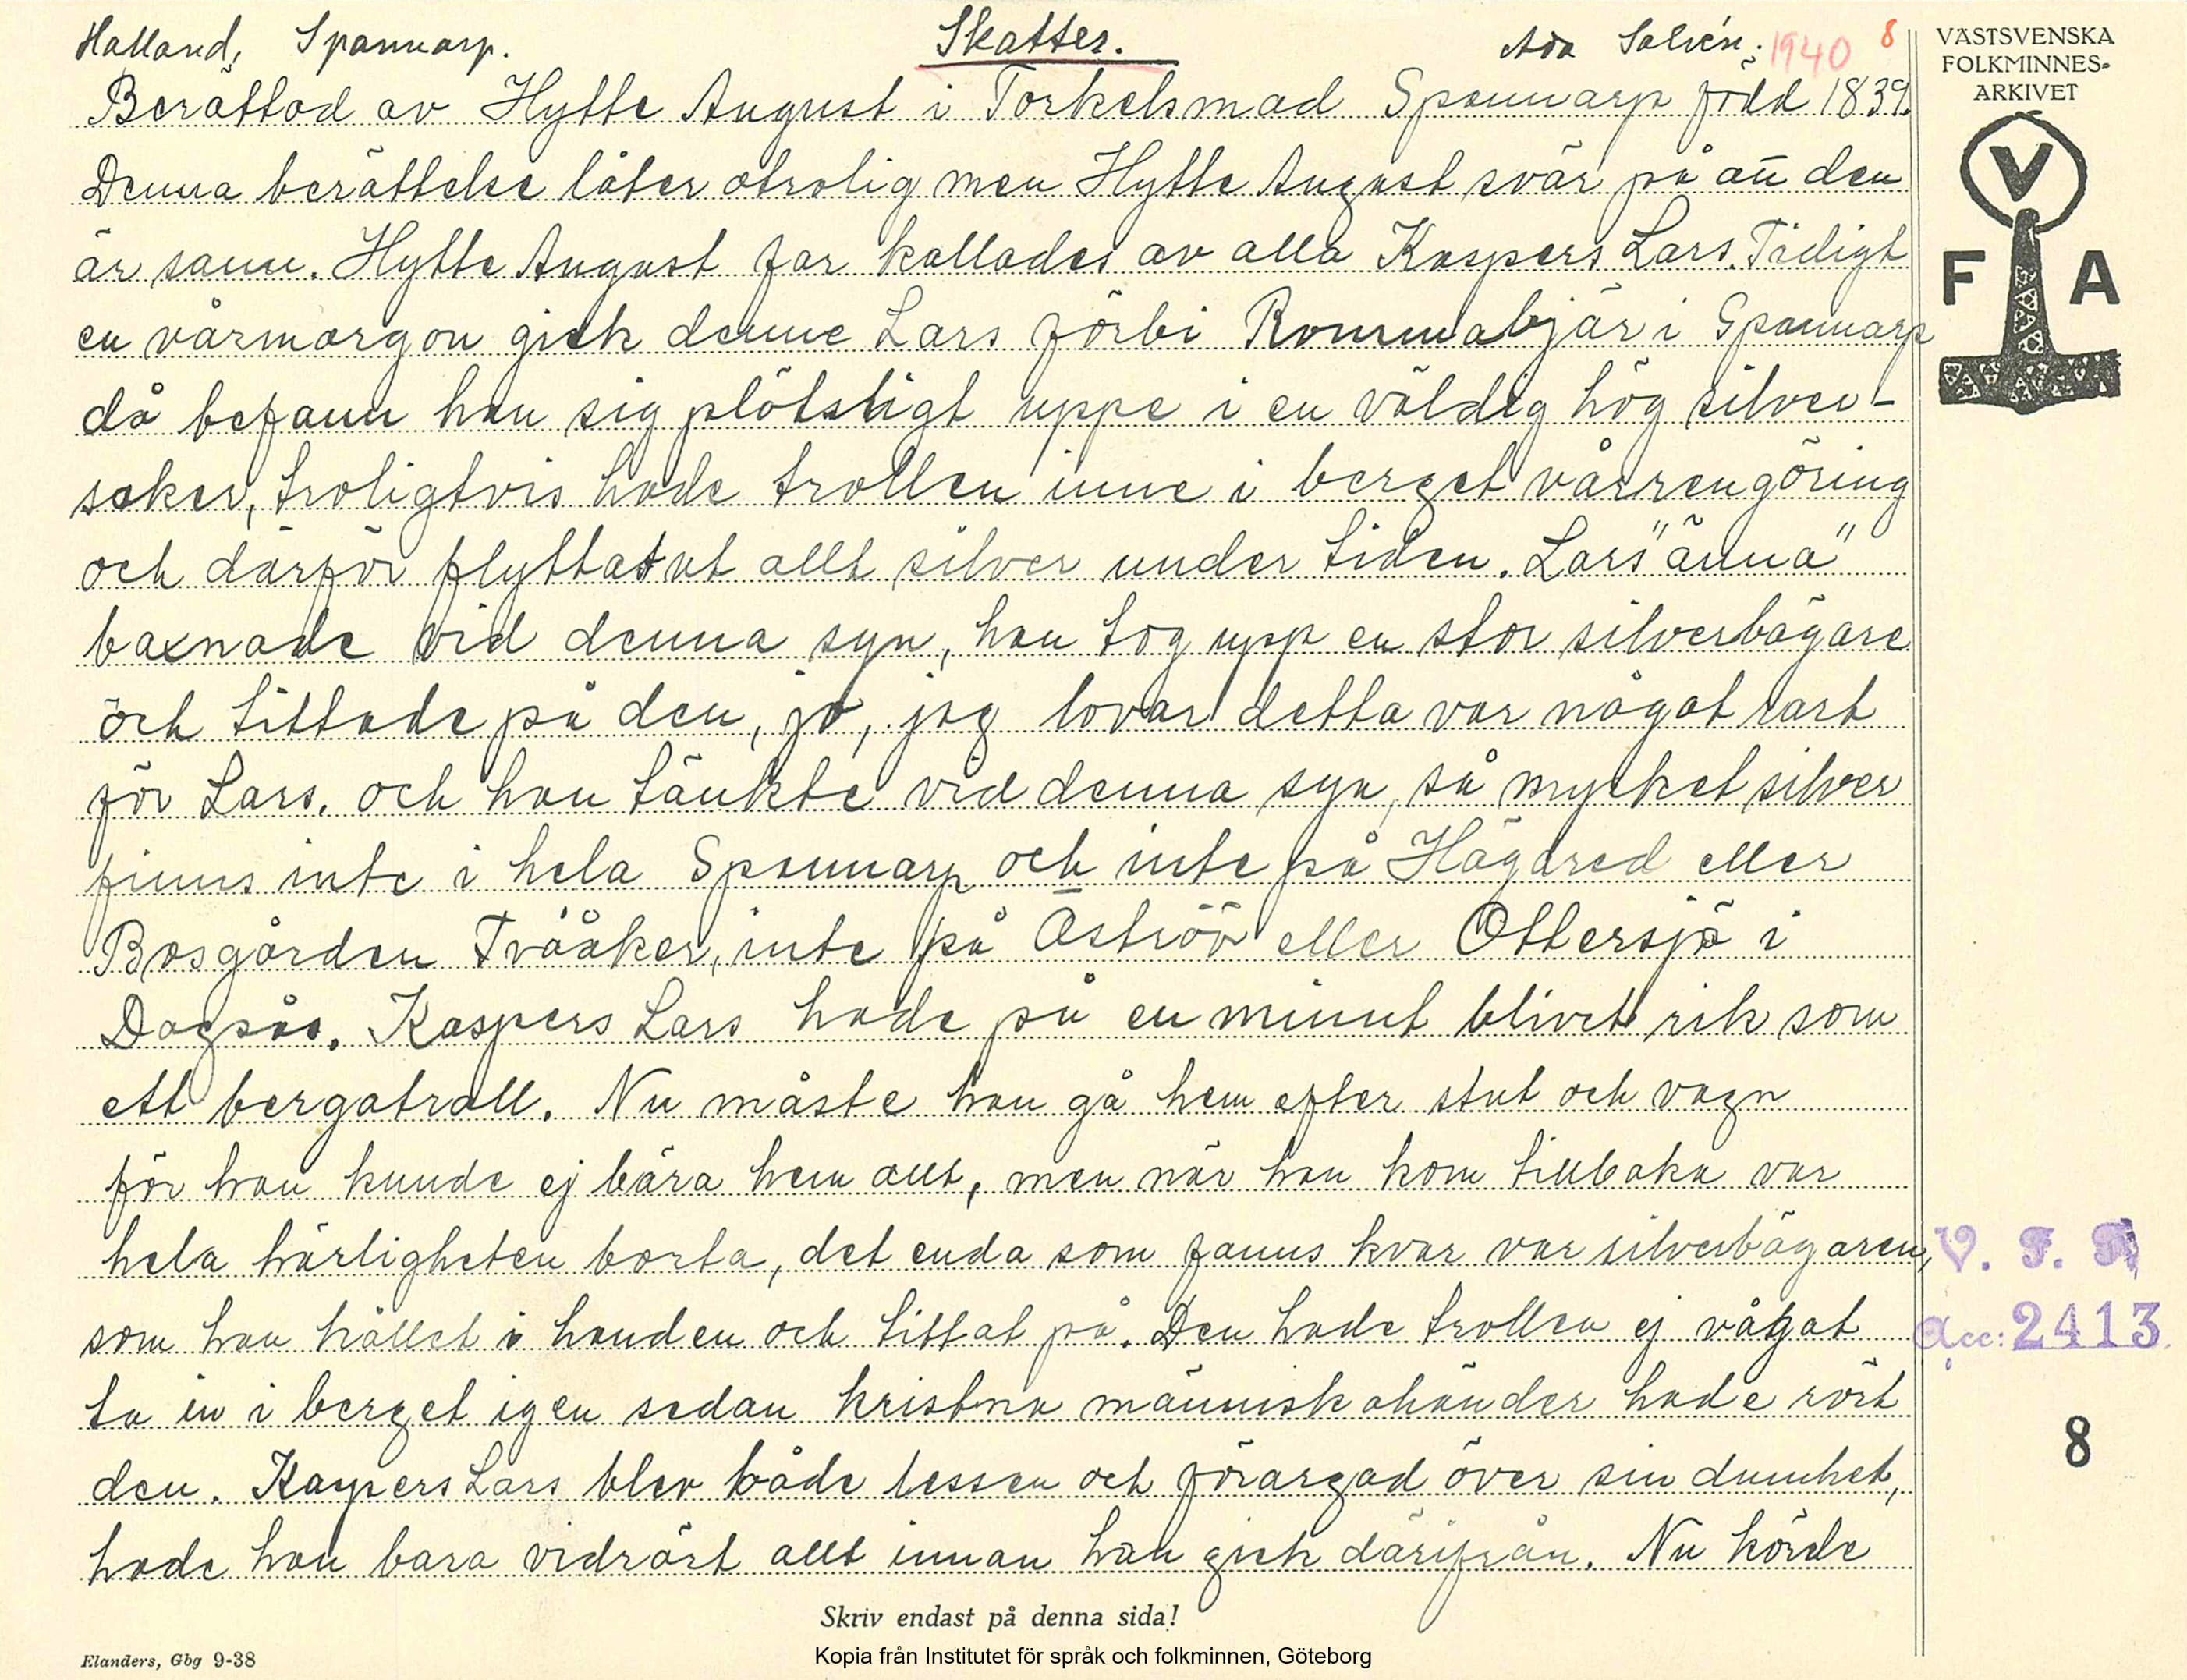 Halland, Spannarp. Skatter. Ada Solvén. 1940 8
Berättad av Hytte August i Torkelsmad Spannarp född 1839.
Denna berättelse låter otrolig men Hytte August svär på att den
är sann. Hytte August far kallades av alla Kaspers Lars. Tidigt
en vårmorgon gick denne Lars förbi Rommabjär i Spannarp
då befann han sig plötsligt uppe i en väldig hög silver-
saker, troligtvis hade trollen inne i berget vårrengöring
och därför flyttat ut allt silver under tiden. Lars "änna"
baxnade vid denna syn, han tog upp en stor silverbägare
och tittade på den, jo, jag lovar detta var något rart
för Lars. och han tänkte vid denna syn, så mycket silver
finns inte i hela Spannarp och inte på Hägared eller
Bosgården Tvååker, inte på Äströö eller Ottersjö i
Dagsås. Kaspers Lars hade på en minut blivit rik som
ett bergatroll. Nu måste han gå hem efter stut och vagn
för han kunde ej bära hem allt, men när han kom tillbaka var
hela härligheten borta, det enda som fanns kvar var silverbägaren,
som han hållet i handen och tittat på. Den hade trollen ej vågat
ta in i berget igen sedan kristna människohänder hade rört
den. Kaspers Lars blev både lessen och förargad över sin dumhet,
hade han bara vidrört allt innan han gick därifrån. Nu körde
Skriv endast på denna sida!
Elanders, Gbg 9-38
Kopia från Institutet för språk och folkminnen, Göteborg
VÄSTSVENSKA
FOLKMINNES-
ARKIVET
V
F A
V. F. A
Acc: 2413
8